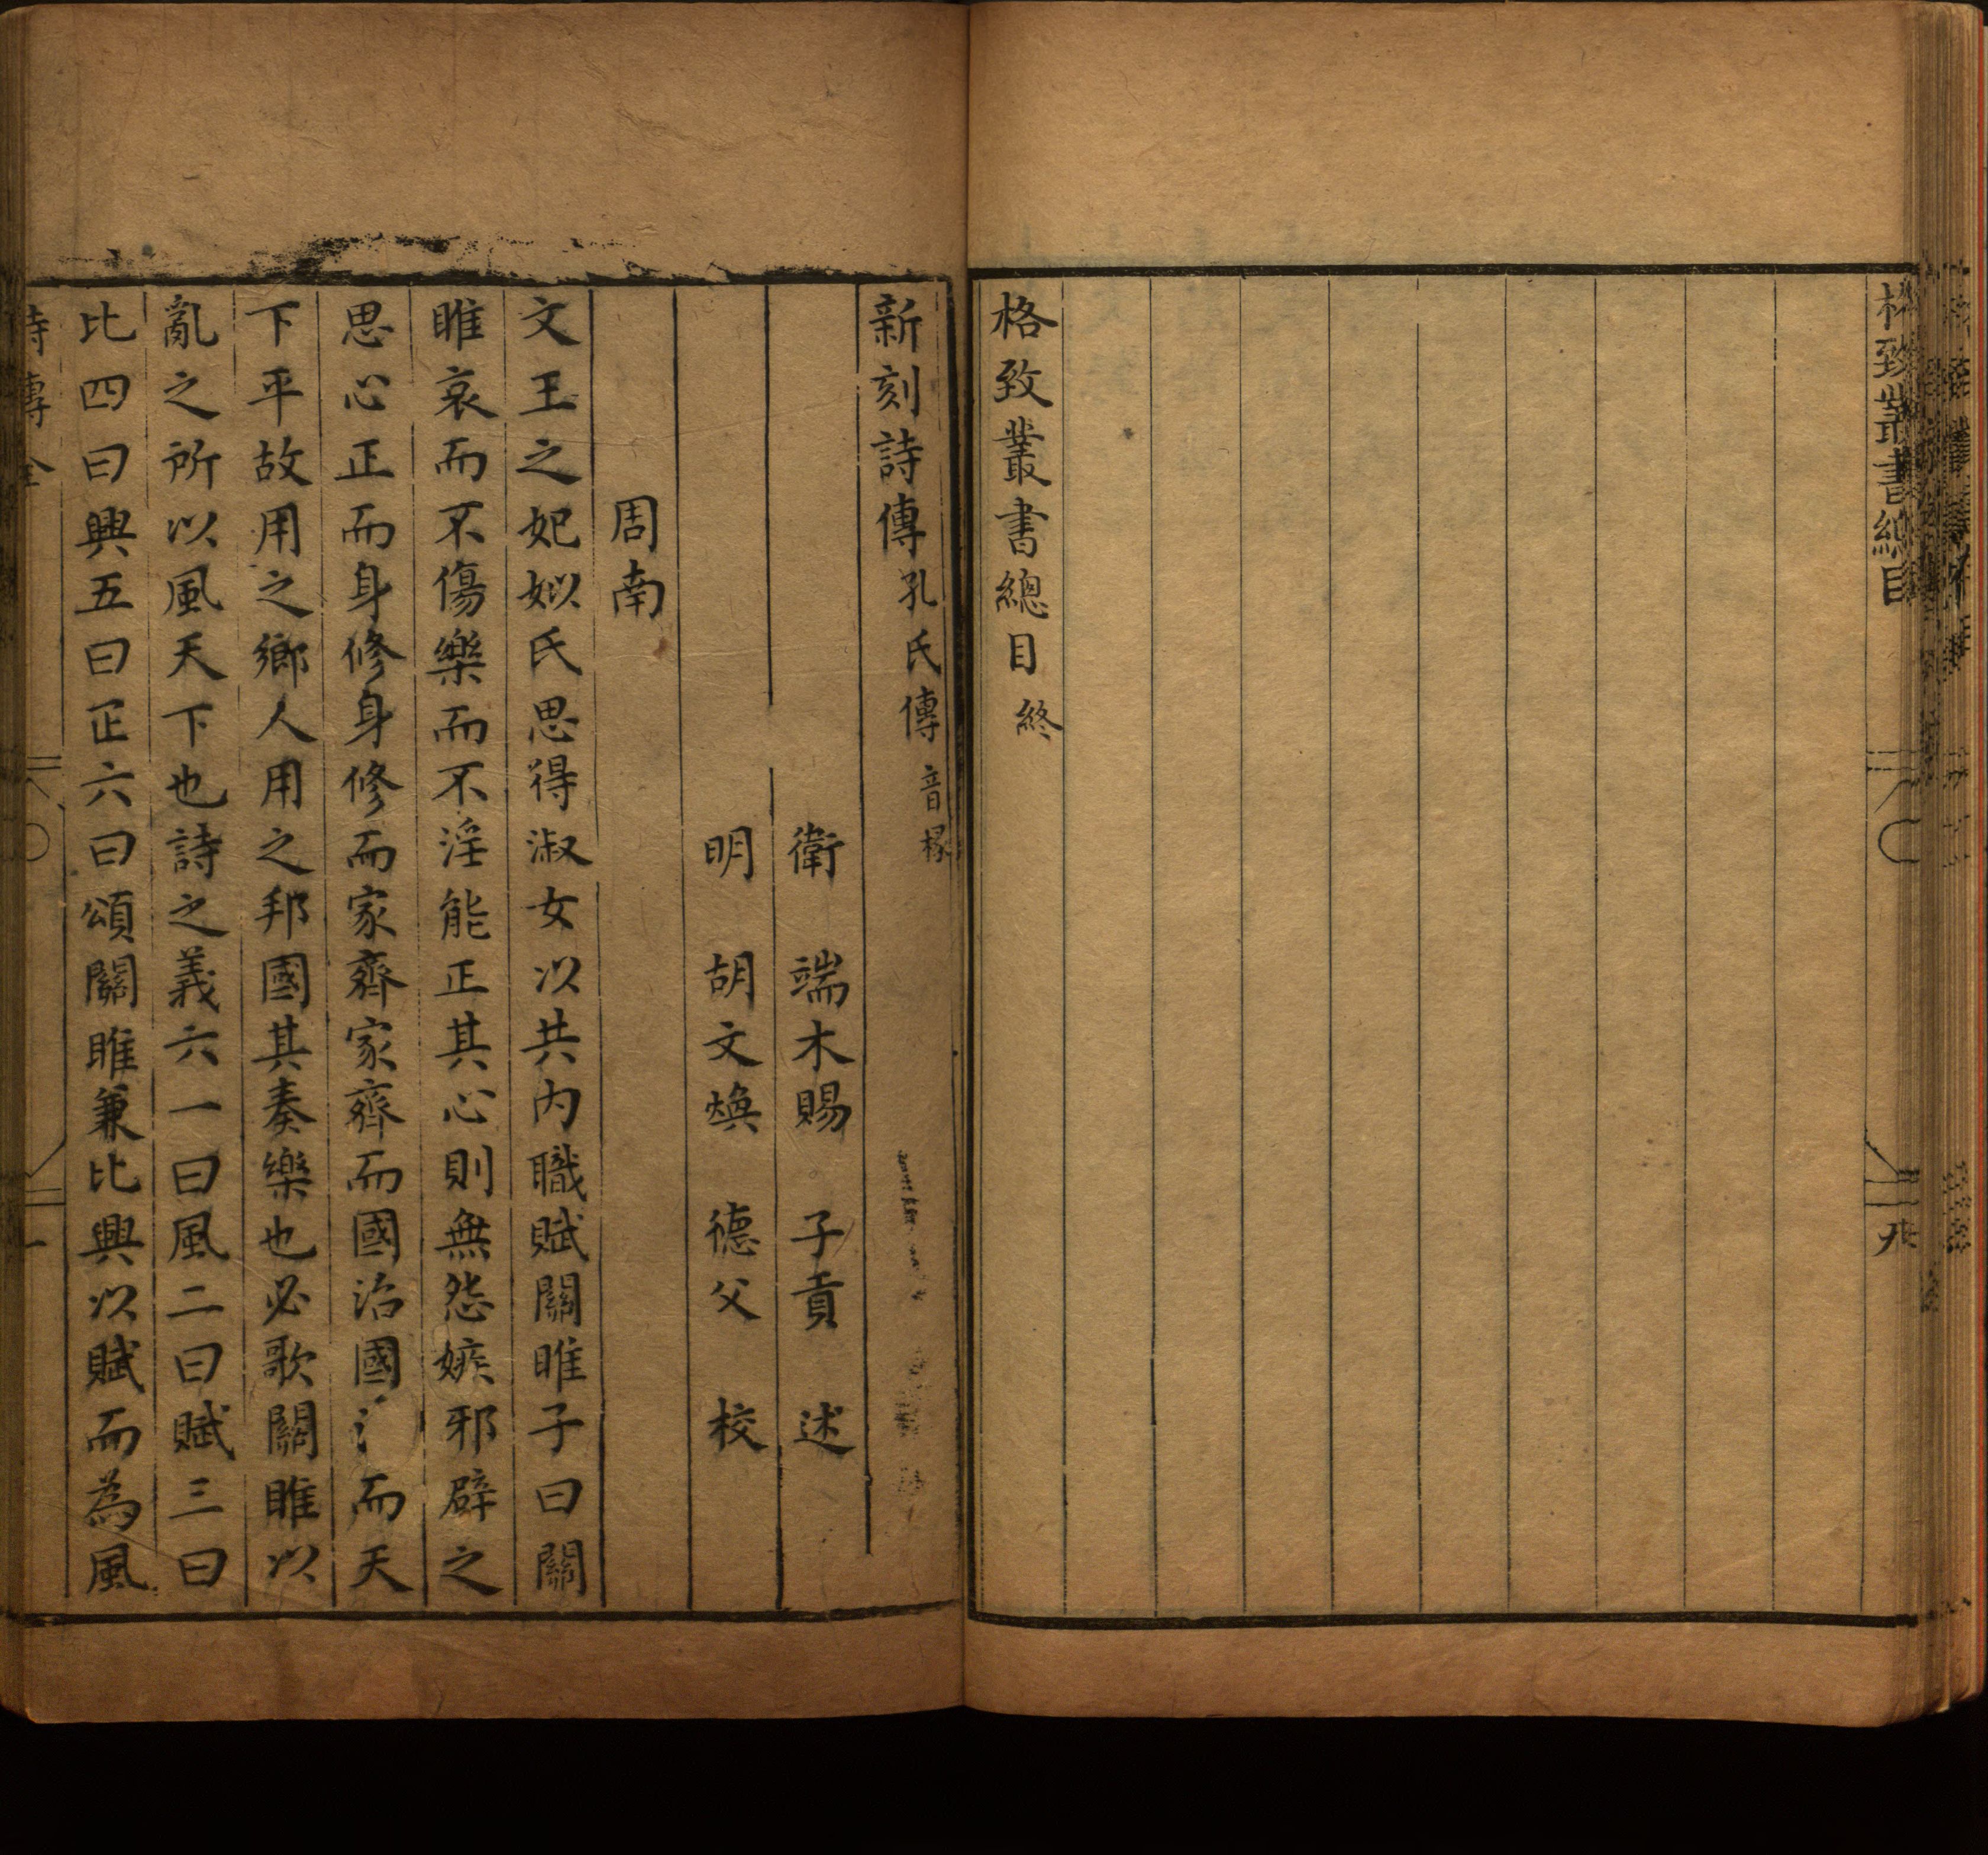 格致叢書總目
格致叢書總目終
新刻詩傳孔氏傳音椽
衛端木賜子貢述
明胡文煥德父校
周南
文王之妃姒氏思得淑女以共內職賦關雎子曰關
雎哀而不傷樂而不淫能正其心則無怨嫉邪辟之
思心正而身修身修而家齊家齊而國治國氵而天
下平故用之鄉人用之邦國其奏樂也必歌關雎以
亂之所以風天下也詩之義六一曰風二曰賦三曰
比四曰興五曰正六曰頌關雎兼比興以賦而為風
詩傳全
一